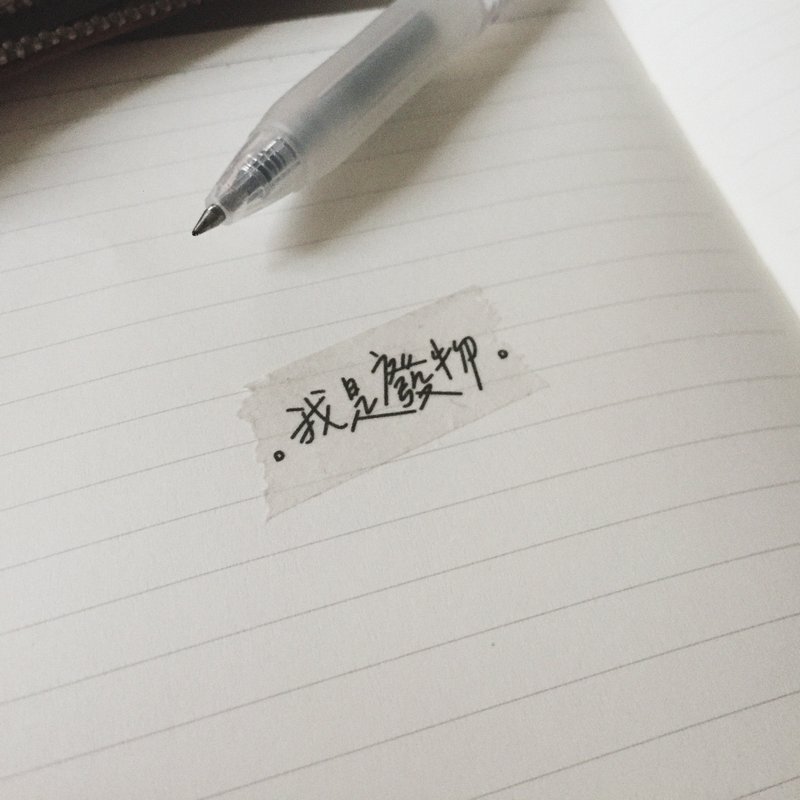 。我是廢物。